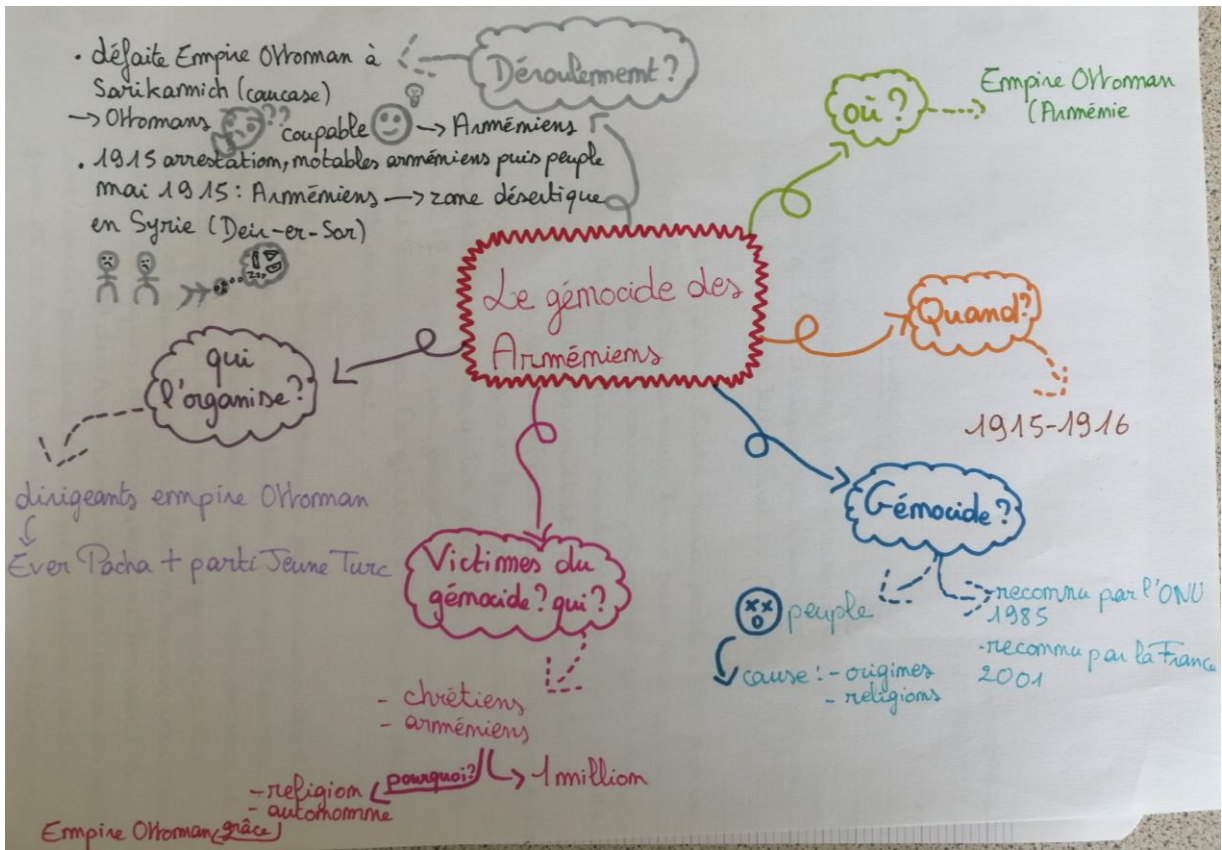 Le génocide des
Arméniens
Déroulement?
. défaite Empire Ottoman à
Sarikamich (caucase)
→ Ottomans ?? coupable → Arméniens
. 1915 arrestation, notables arméniens puis peuple
mai 1915 : Arméniens → zone désertique
en Syrie (Deir-er-Sor)
où?
Empire Ottoman
(Arménie
Quand?
1915-1916
Génocide?
peuple
cause : - origines
- religions
-reconnu par l'ONU
1985
-reconnu par la France
2001
Victimes du
génocide? qui?
- chrétiens
- arméniens
1 million
pourquoi?
- religion
- autonomne
Empire Ottoman (grâce)
qui
l'organise?
dirigeants empire Ottoman
Ever Pacha + parti Jeune Turc